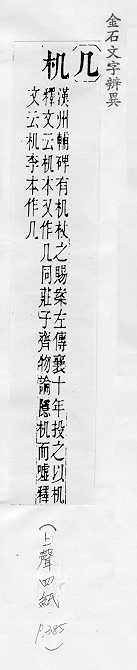 金石文字辨異
几
机
漢州輔碑有机杖之賜案左傳襄十年投之以机
釋文云机本又作几同莊子齊物論隱机而噓釋
文云机李本作几
(上聲四紙 p.385)